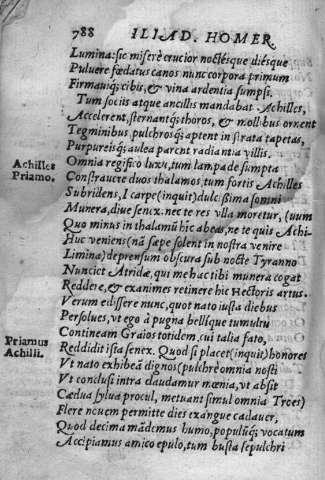 788 ILIAD. HOMER.
Lumina: sic miserè crucior noctésque diésque
Puluere fœdatus canos nunc corpora primum
Firmauiq́; cibis, & vina ardentia sumpsi.
Tum sociis atque ancillis mandabat Achilles,
Accelerent, sternantq́; thoros, & mollibus ornent
Tegminibus pulchrosq́; aptent in strata tapetas,
Purpureisq́; aulea parent radiantia villis.
Achilles Priamo.
Omnia regifico luxu, tum lampade sumpta
Construxere duos thalamos, tum fortis Achilles
Subridens, I carpe (inquit) dulcissima somni
Munera, diue senex. nec te res vlla moretur, (uum
Quo minus in thalamũ hic abeas, ne te quis Achi-
Huc veniens (nã sæpe solent in nostra venire
Limina) deprensum obscura sub nocte Tyranno
Nunciet Atridæ, qui me hac tibi munera cogat
Reddere, & exanimes retinere hic Hectoris artus.
Verum edissere nunc, quot nato iusta diebus
Persolues, vt ego à pugna bellíque tumultu
Contineam Graios totidem, cui talia fato,
Priamus Achilli.
Reddidit ista senex. Quod si placet (inquit) honores
Vt nato exhibeã dignos (pulchrè omnia nosti
Vt conclusi intra claudamur mœnia, vt absit
Cædua sylua procul, metuant simul omnia Troes)
Flere nouem permitte dies exangue cadauer,
Quod decima mãdemus humo, populúq́; vocatum
Accipiamus amico epulo, tum busta sepulchri